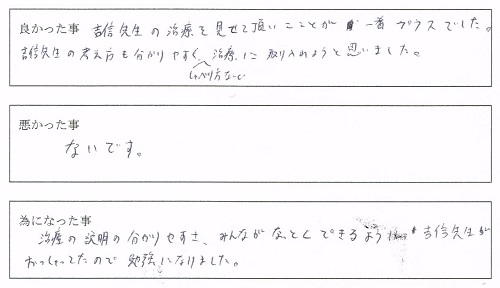 良かった事 吉信先生の治療を見せて頂いたことが一番プラスでした。
吉信先生の考え方も分かりやすく、治療に取り入れようと思いました。
しゃべり方など
悪かった事
ないです。
為になった事
治療の説明の分かりやすさ、みんながなっとくできるよう吉信先生が
おっしゃってたので勉強になりました。